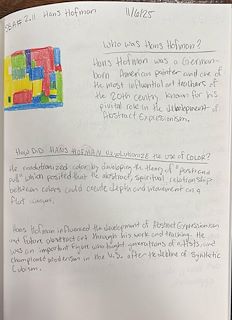 SBA# 2.11 Hans Hofman 11/6/25
Who was Hans Hofman?
Hans Hofman was a German-
born American painter and one of
the most influential art teachers of
the 20th century, known for his
pivotal role in the development of
Abstract Expressionism.
How DID HANS HOFMAN revolutionize the use of COLOR?
He revolutionized color by developing the theory of "push and
pull" which posited that the abstract, spiritual relationship
between colors could create depth and movement on a
flat canvas.
Hans Hofman influenced the development of Abstract Expressionism
and future abstract era through his work and teaching. He
was an important figure who taught generations of artists, and
championed modernism in the U.S. after the decline of Synthetic
Cubism.